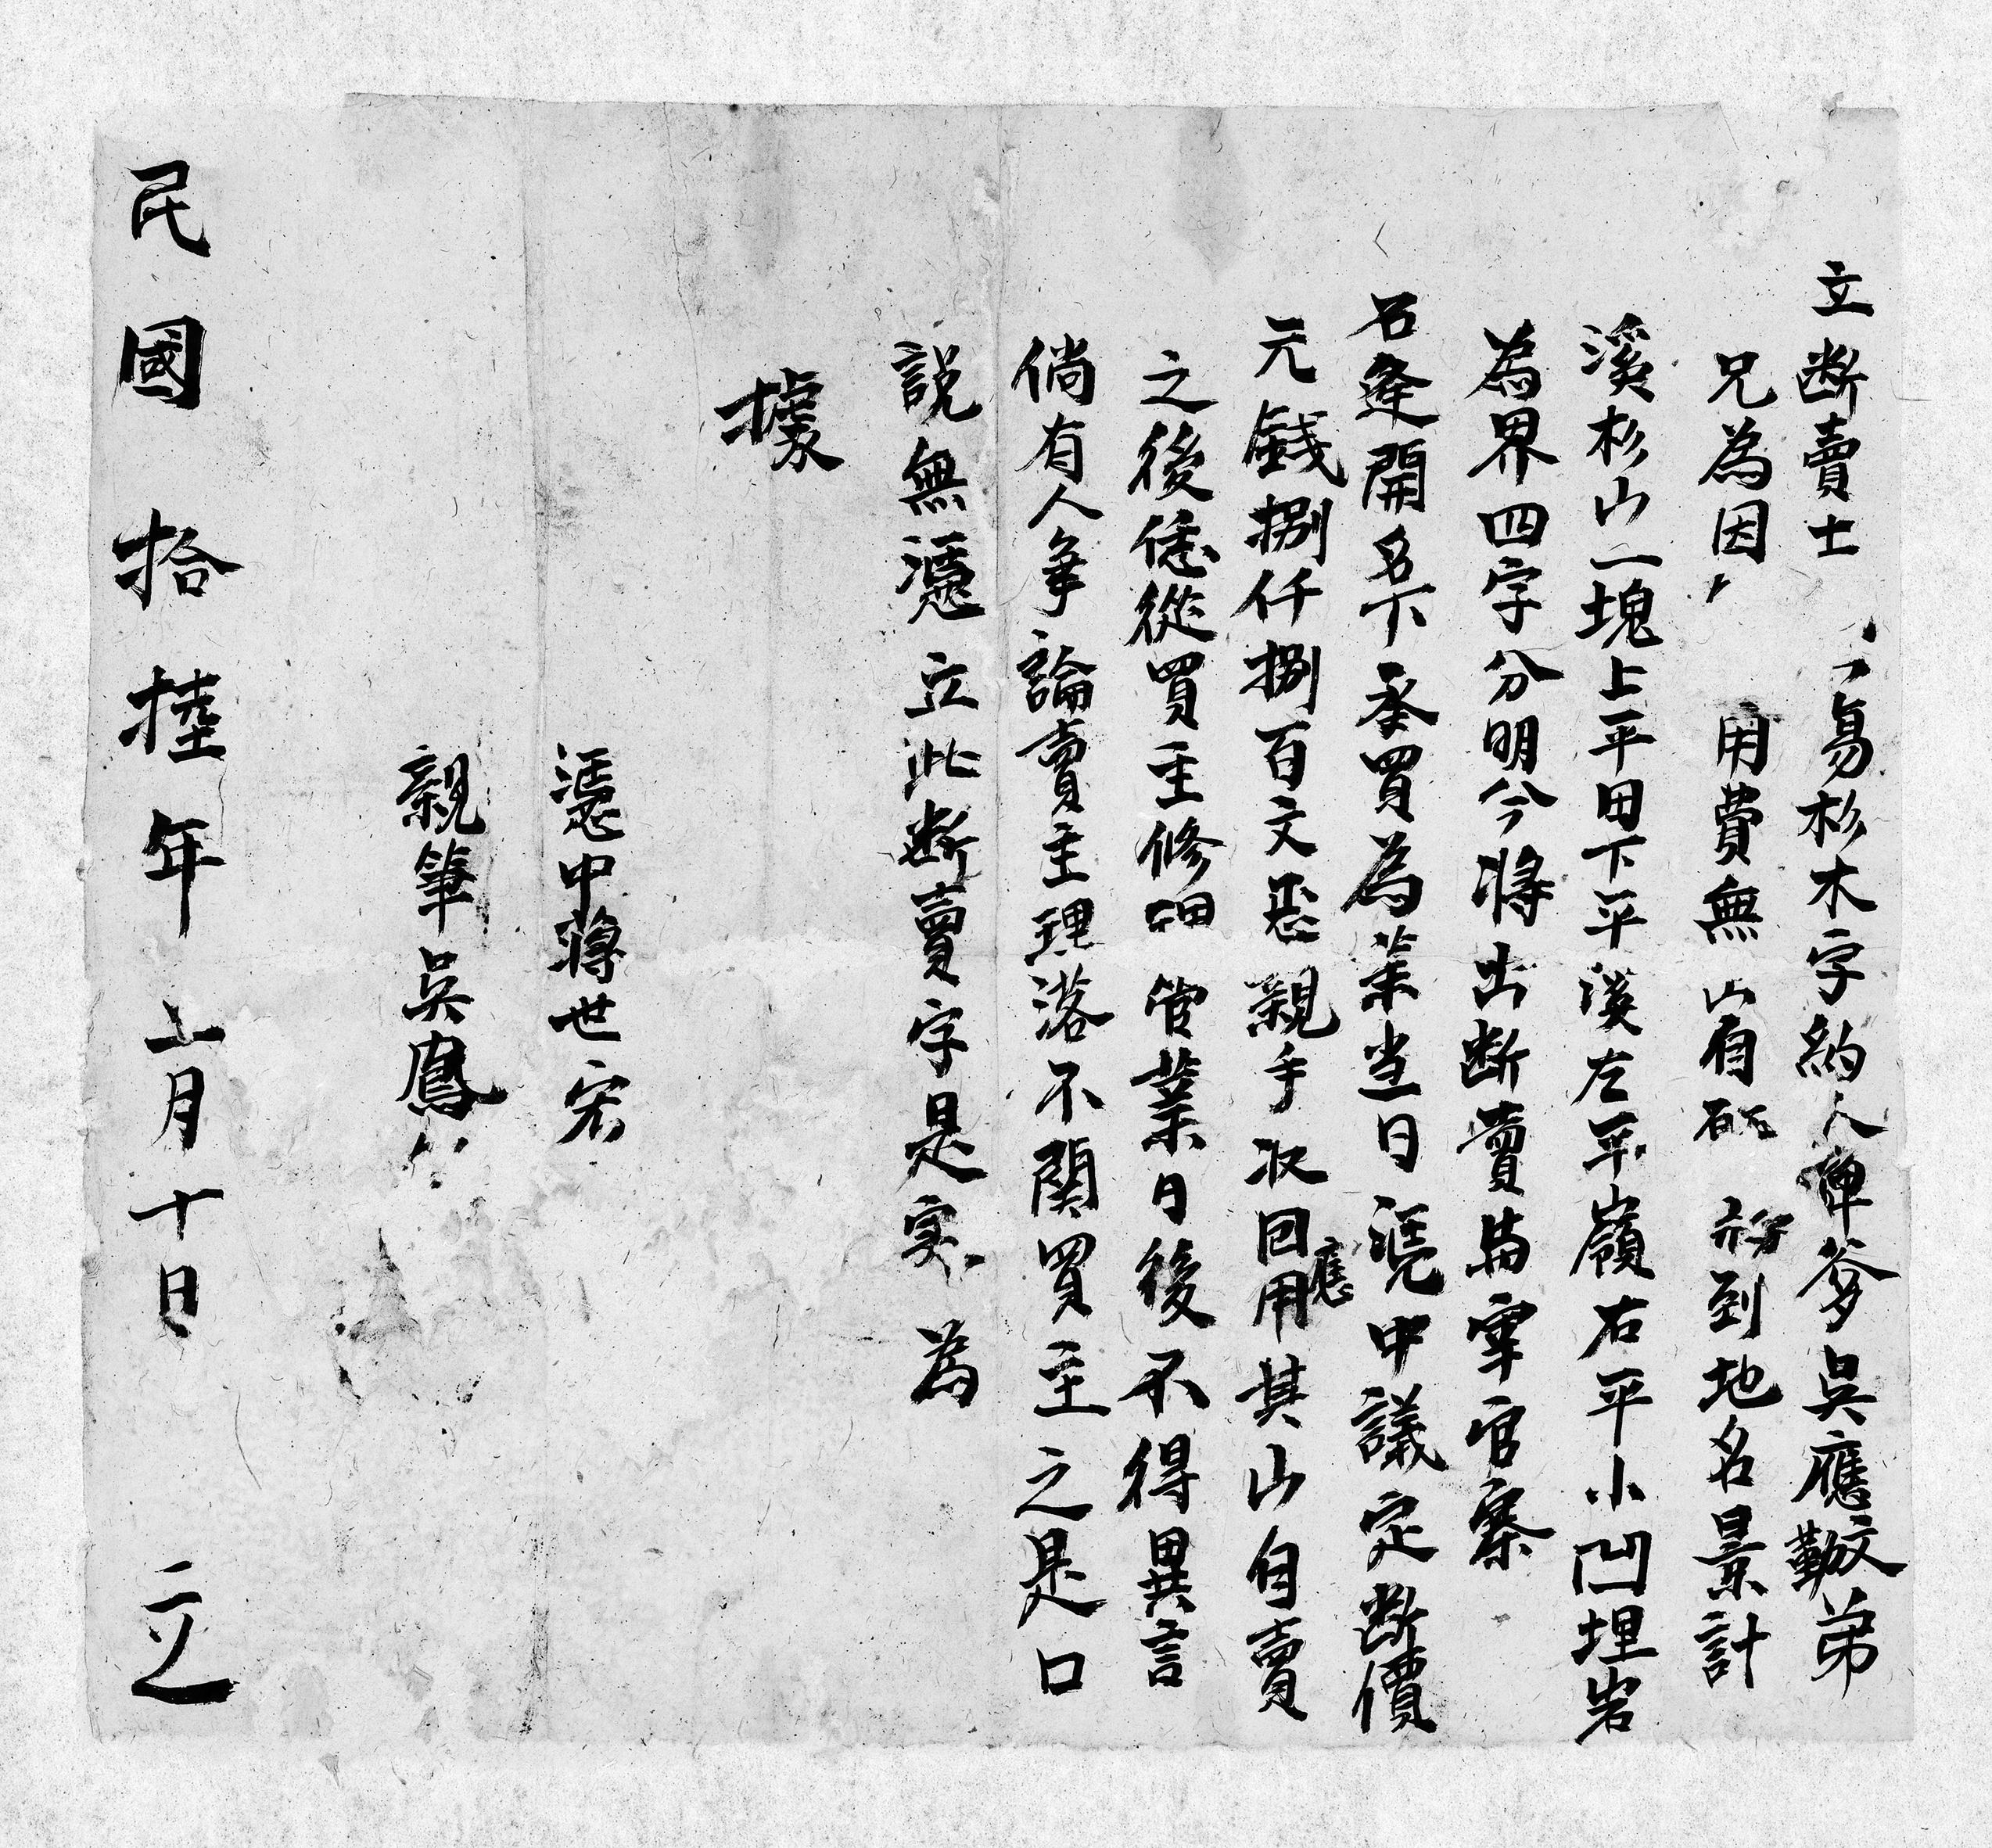 立断賣土易杉木字約人脾爹吳應勷文弟
兄為因用費無山有砍到地名景計
溪杉山一塊上平田下平溪左平嶺右平小凹埋岩
為界四字分明今將出断賣與官寨
石逢開名下承買為業當日憑中議定断價
元錢捌仟捌百文恐親手収回應用其山自賣
之後恁從買主修理管業日後不得異言
倘有人爭論賣主理落不関買主之是口
説無憑立此断賣字是実為
據
憑中蔣世宏
親筆吳鳳
民國拾陸年二月十日立